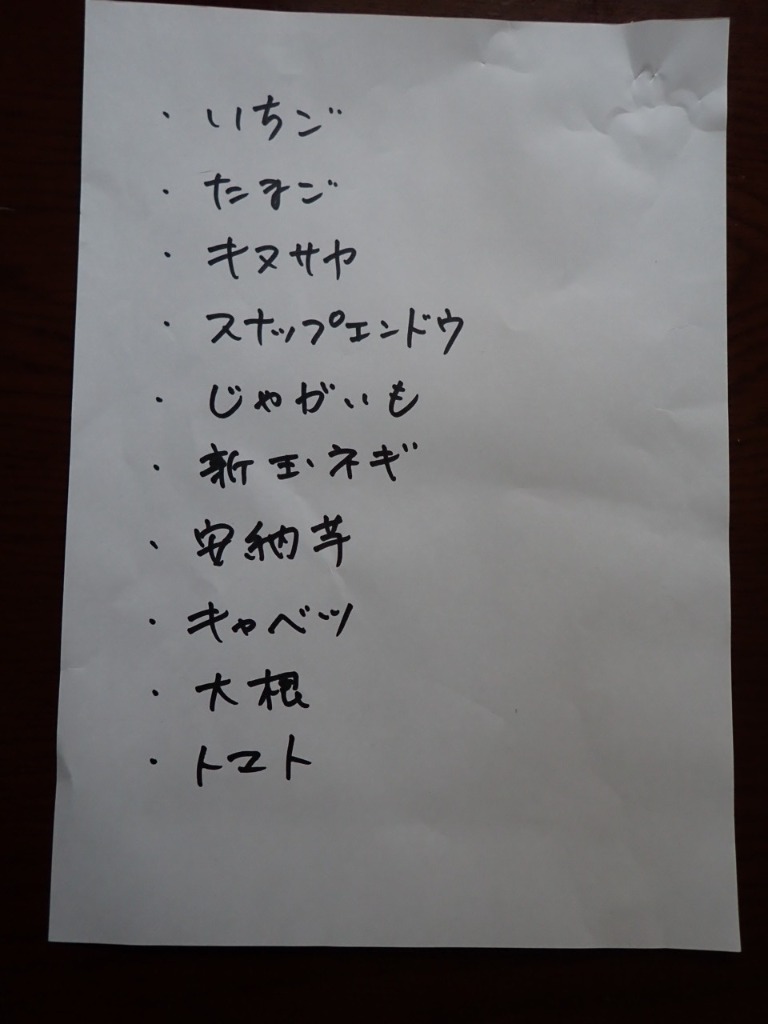 ・いちご
・たまご
・キヌサヤ
・スナップエンドウ
・じゃがいも
・新玉ネギ
・安納芋
・キャベツ
・大根
・トマト